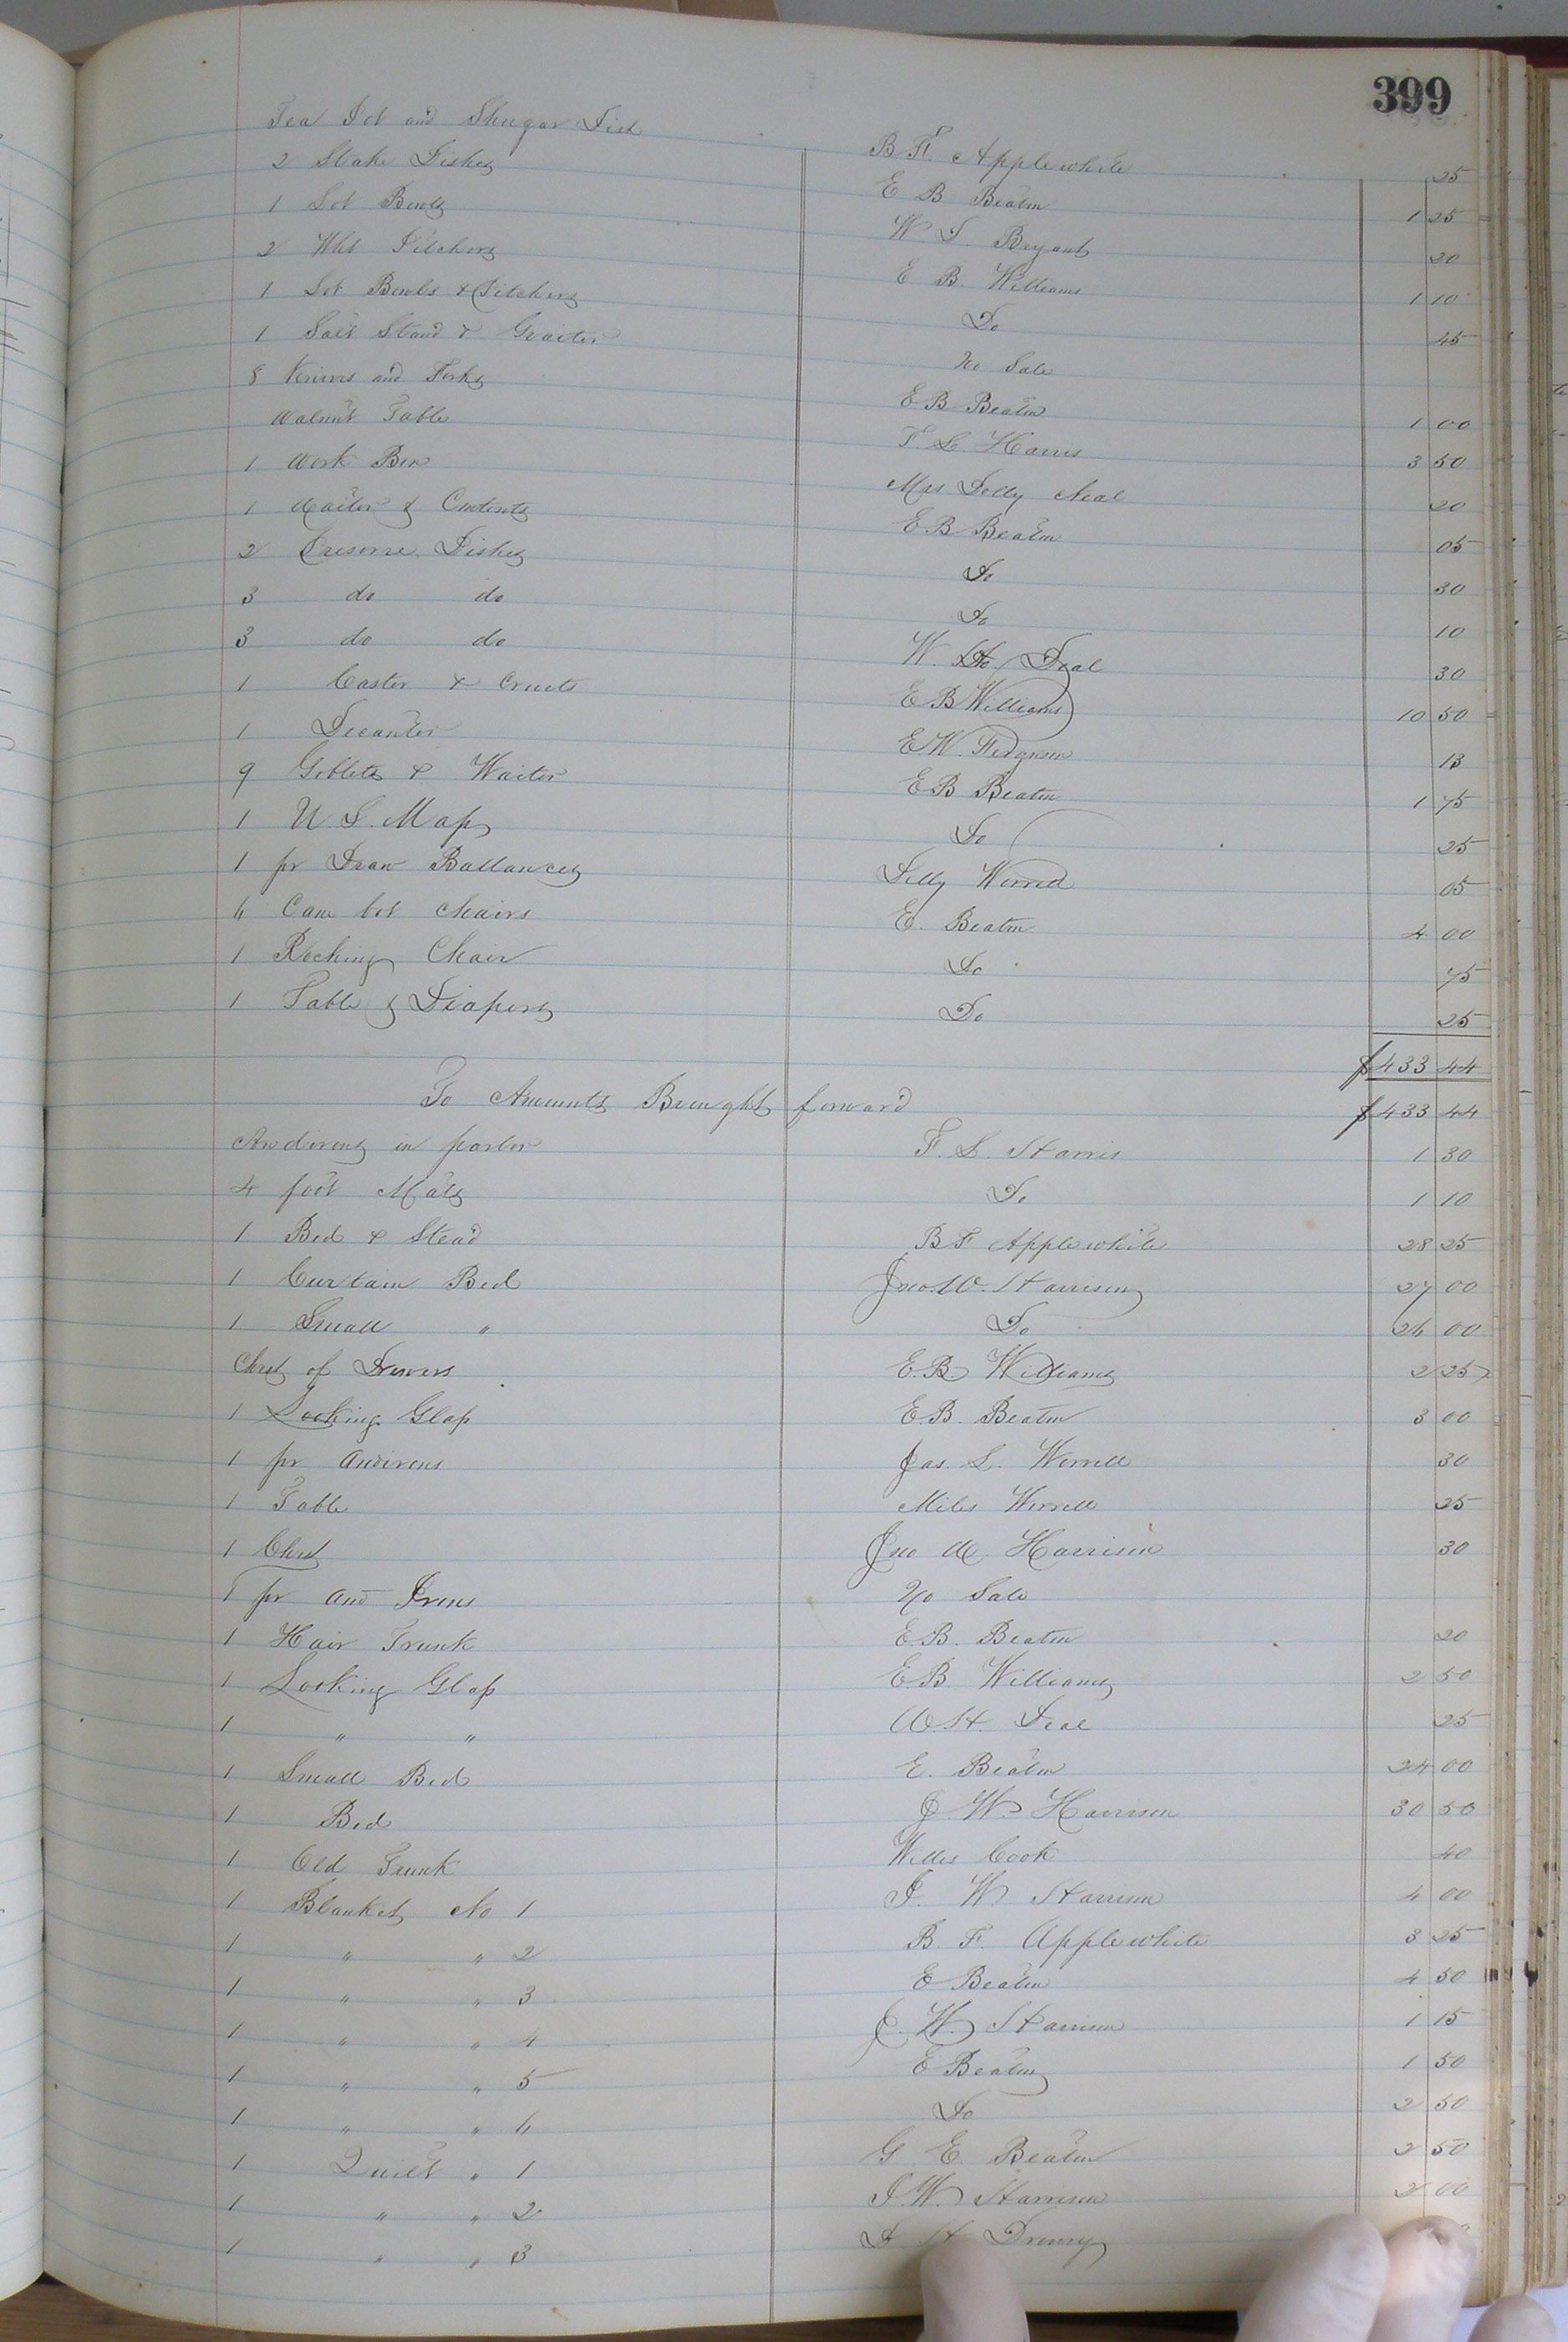 399
Tea Pot and Shugar Dish B F. Applewhite 25
2 Stake Dishes E B Beaton 1 25
1 Lot Bowls W D. Bryant 20
2 Wht Pitchers E B. Williams 1 10
1 Lot Bowls & Pitchers Do 45
1 Salt Stand & Graiter No Sale
8 Knives and Forks E B Beaton 1 00
Walnut Table T L. Harris 3 50
1 Work Box Mrs Dolly Neal 20
1 Waiter & Contents E. B Beaton 05
2 Preserve Dishes Do 30
3 do do Do 10
3 do do W. H. Deal 30
1 Caster & Cruets E B Williams 10 50
1 Decanter E W. Ferguson 13
9 Goblets & Waiter E B Beaton 1 75
1 U. S. Map Do 25
1 pr Draw Ballances Worred 05
6 Cane bot chairs E. Beaton 4 00
1 Rocking Chair Do 75
1 Table & Diapers Do 25
$433 44
To Amounts Brought forward $433 44
Andirons in parlor F. L. Harris 1 30
4 foot Mats Do 1 10
1 Bed & Stead B F Applewhite 28 25
1 Curtain Bed Jno. W. Harrison 27 00
1 Small " Do 26 00
Chest of Drawers E. B. Williams 2 25
1 Looking Glass E. B. Beaton 3 00
1 pr Andirons Jas. L. Worrell 30
1 Table Miles Worrell 25
1 Chest Jno W Harrison 30
1 pr And Irons No Sale
1 Hair Trunk E. B. Beaton 20
1 Looking Glass E B. Williams 2 50
1 " " W. H. Deal 25
1 Small Bed E. Beaton 24 00
1 Bed J. W. Harrison 30 50
1 Old Trunk Willis Cook 40
1 Blanket No 1 J. W. Harrison 4 00
1 " " 2 B. F. Applewhite 3 25
1 " " 3 E Beaton 4 50
1 " " 4 J. W. Harrison 1 15
1 " " 5 E Beaton 1 50
1 " " 6 Do 2 50
1 Quilt " 1 G E Beaton 2 50
1 " " 2 J. W. Harrison 2 00
1 " " 3 Drewry